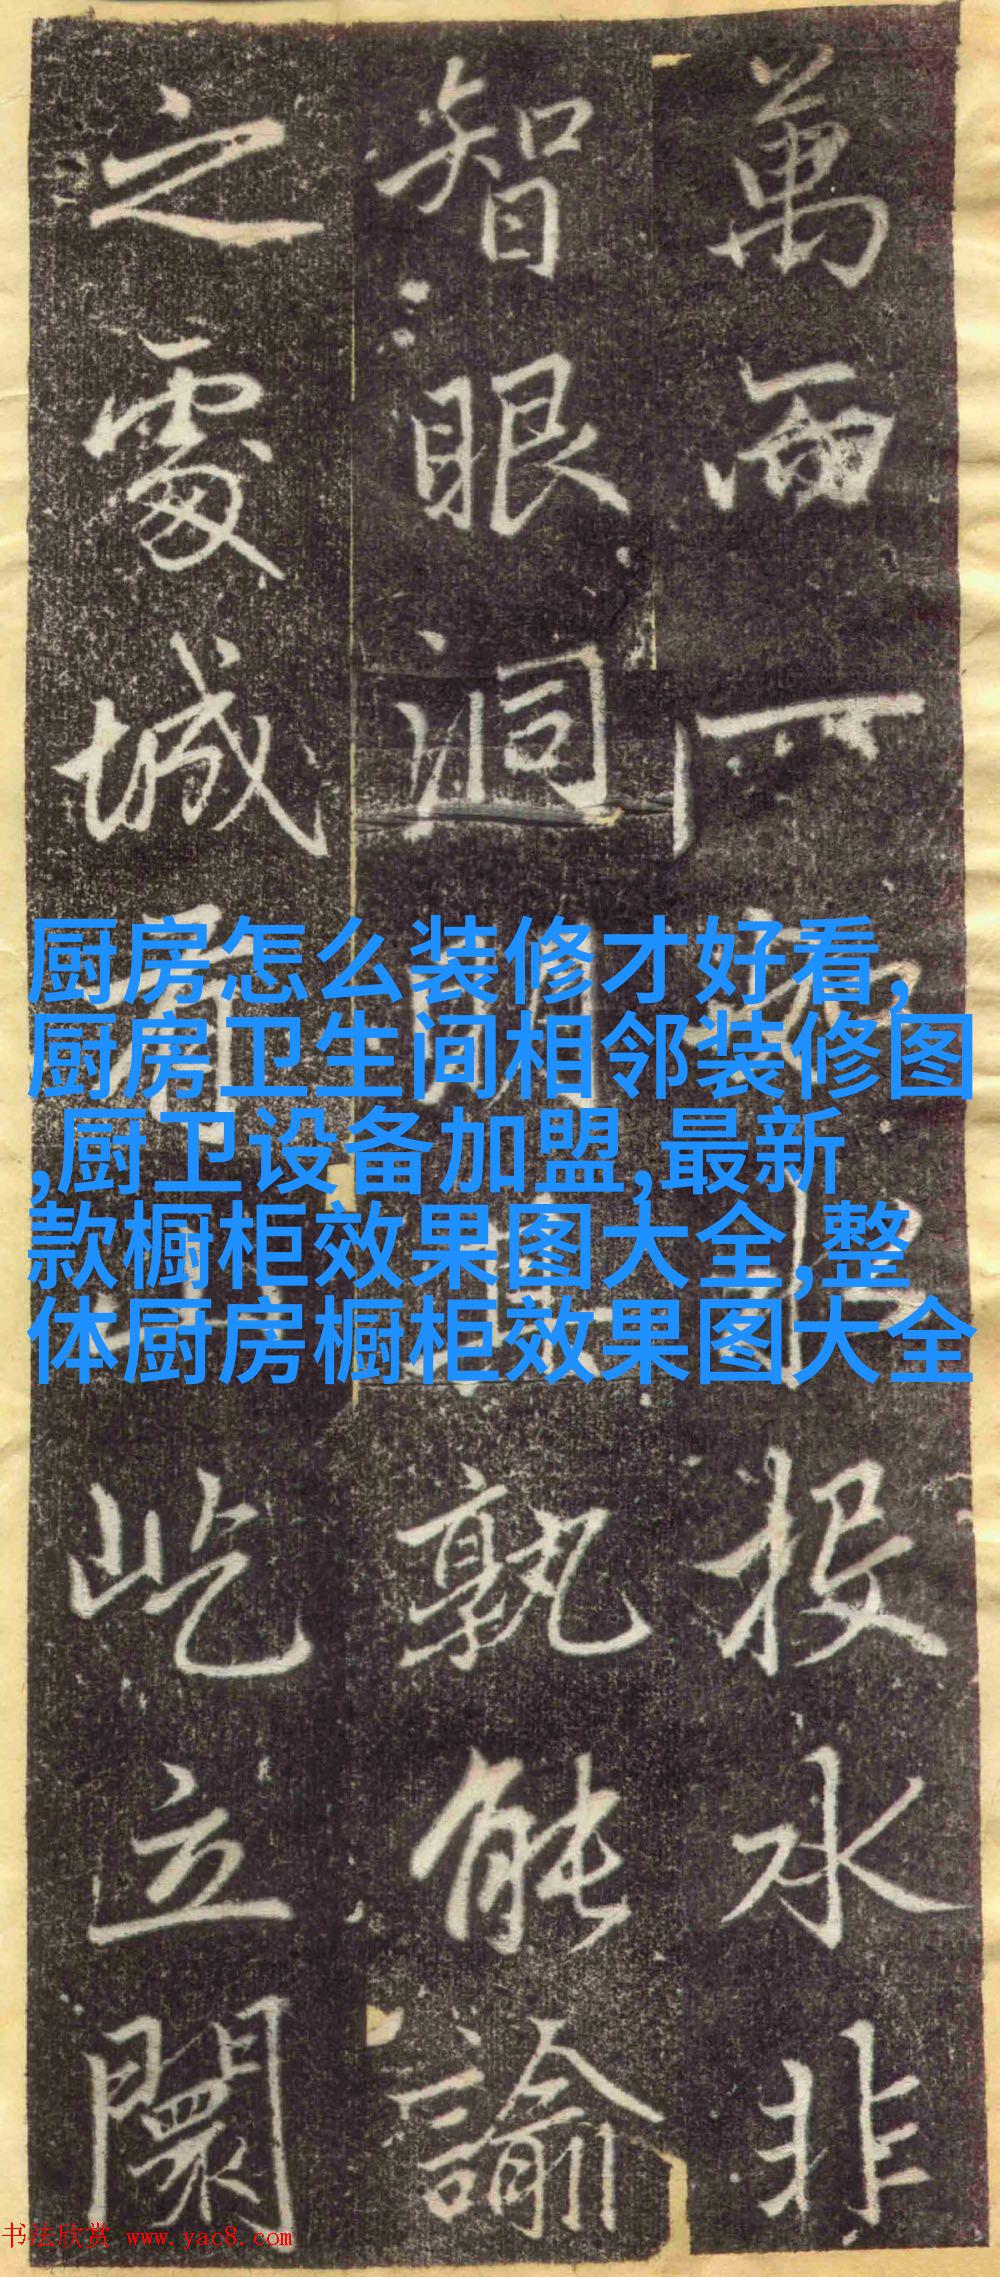 萬兩投水非
智眼洞明孰能諭
之城屹立闤
厨房怎么装修才好看,
厨房卫生间相邻装修图
,厨卫设备加盟,最新
款橱柜效果图大全,整
体厨房橱柜效果图大全
书法欣赏 www.yac8.com